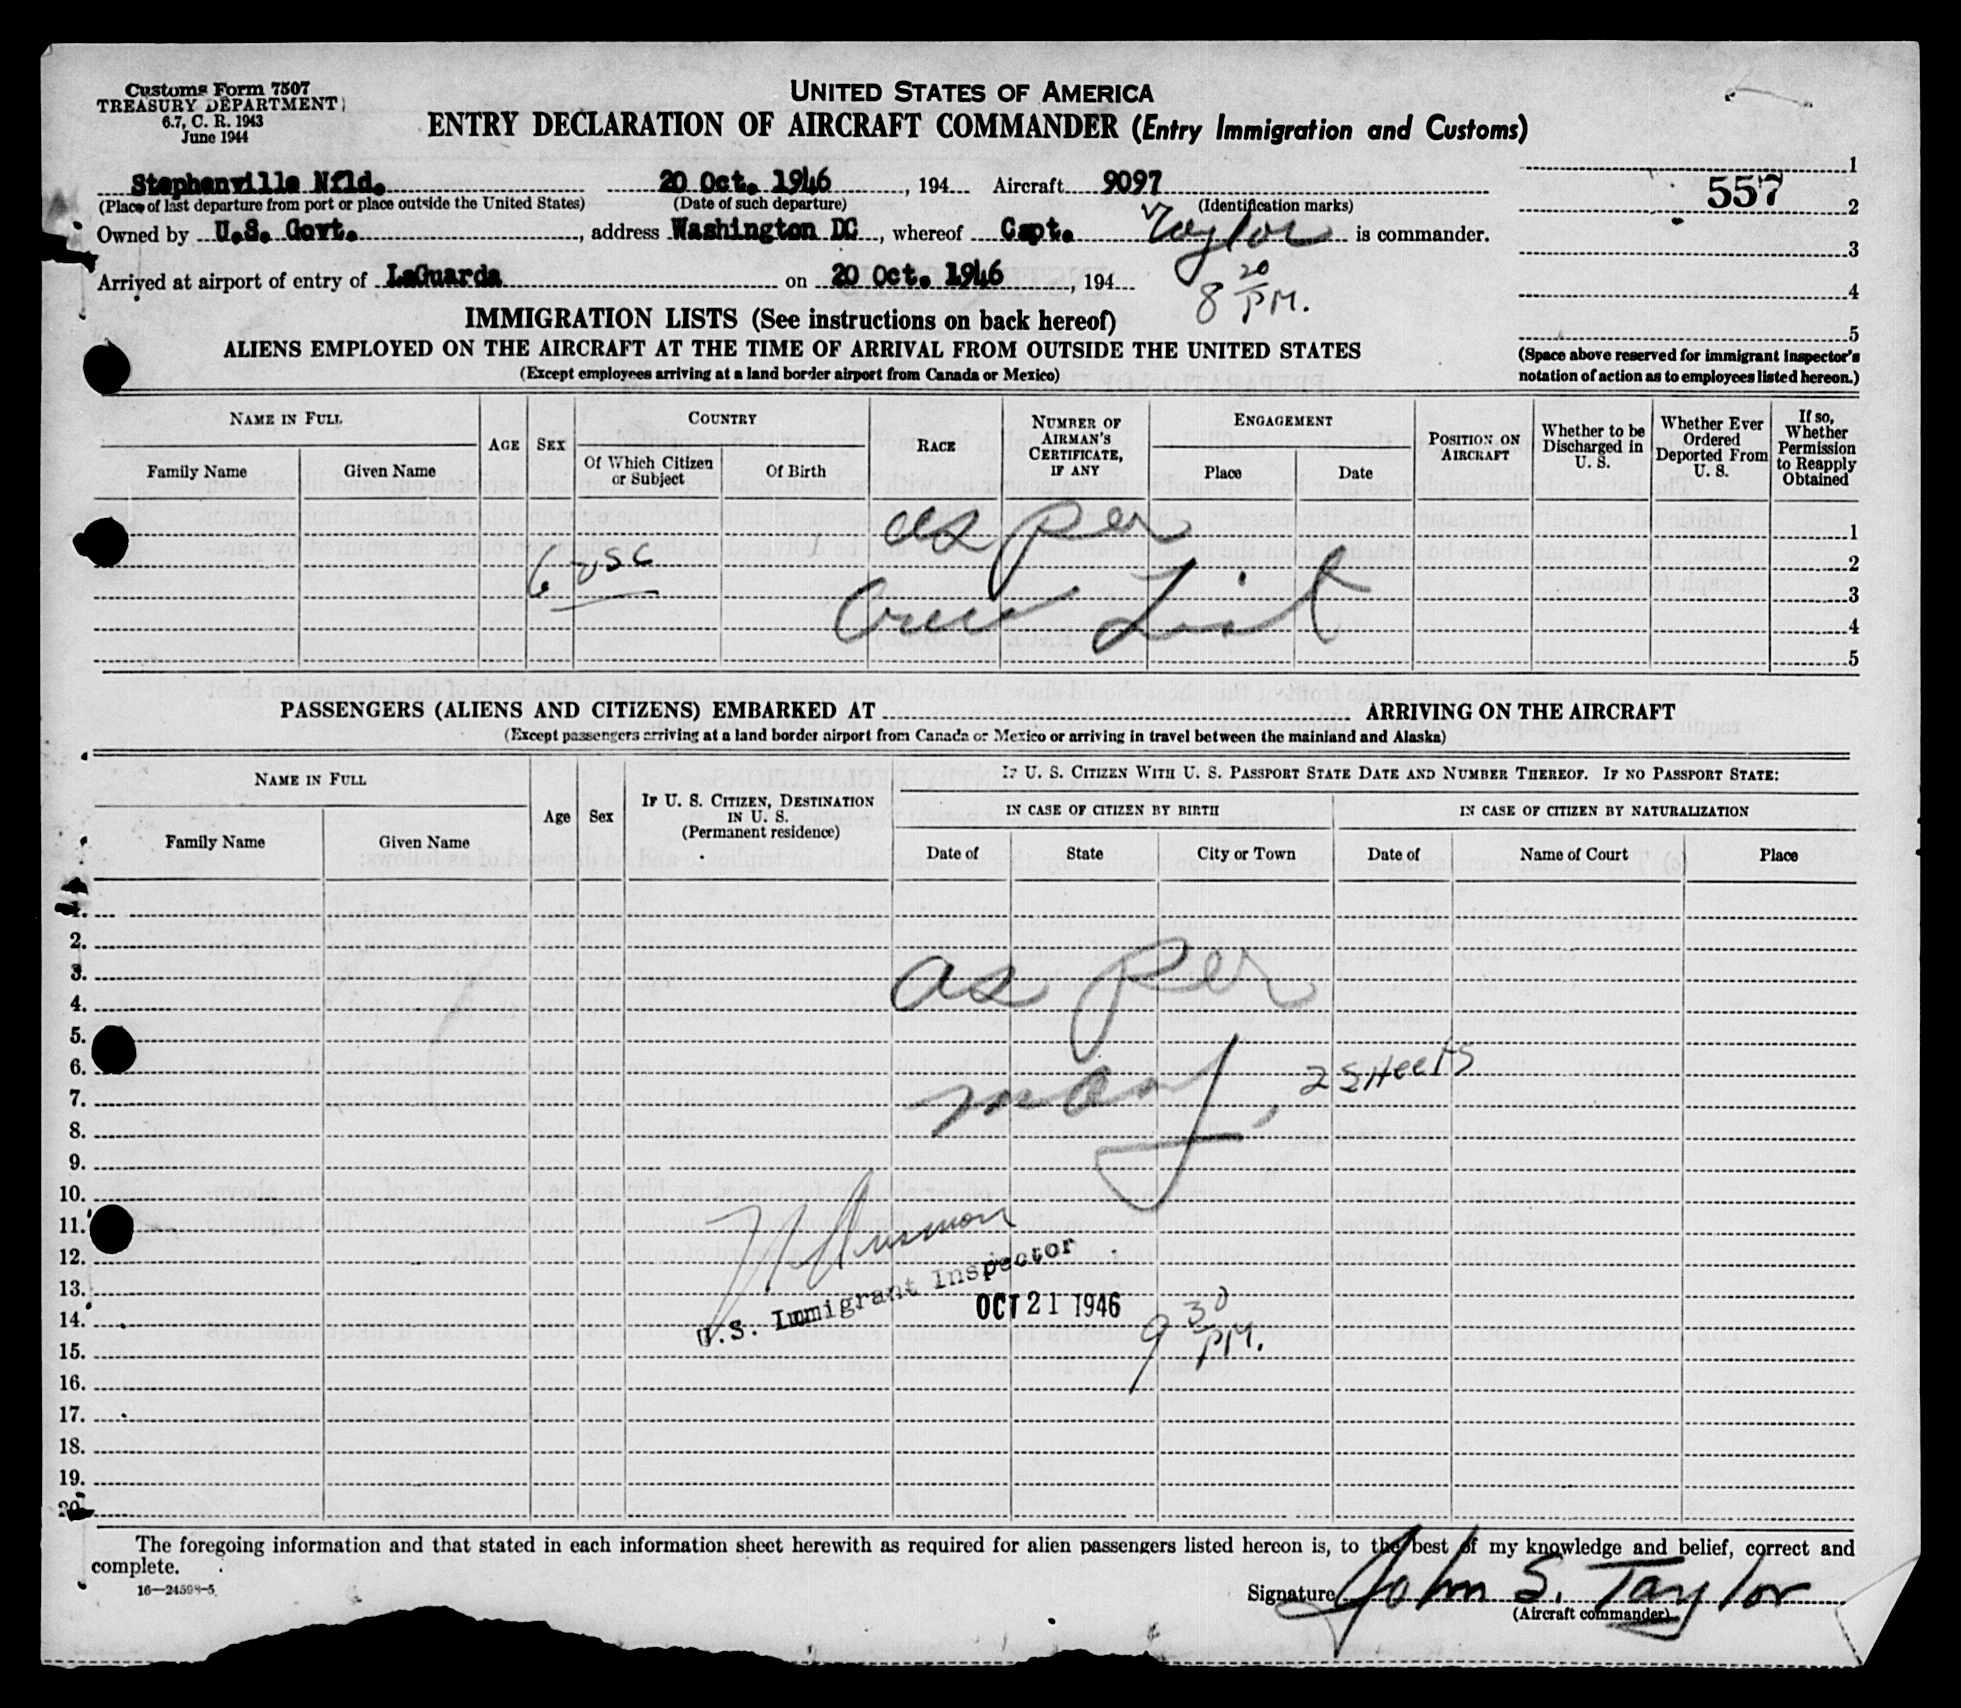 Customs Form 7507
TREASURY DEPARTMENT
6.7, C. R. 1943
June 1944
UNITED STATES OF AMERICA
ENTRY DECLARATION OF AIRCRAFT COMMANDER (Entry Immigration and Customs)
Stephenville Nfld. 20 Oct. 1946, 194 Aircraft 9097
(Place of last departure from port or place outside the United States) (Date of such departure) (Identification marks)
Owned by U.S. Govt., address Washington DC, whereof Capt. Taylor is commander.
Arrived at airport of entry of LaGuarda on 20 Oct. 1946, 194
8 20 PM.
557
1
2
3
4
5
(Space above reserved for immigrant inspector's
notation of action as to employees listed hereon.)
IMMIGRATION LISTS (See instructions on back hereof)
ALIENS EMPLOYED ON THE AIRCRAFT AT THE TIME OF ARRIVAL FROM OUTSIDE THE UNITED STATES
(Except employees arriving at a land border airport from Canada or Mexico)
NAME IN FULL
Family Name
Given Name
AGE
SEX
COUNTRY
Of Which Citizen
or Subject
Of Birth
RACE
NUMBER OF
AIRMAN'S
CERTIFICATE,
IF ANY
ENGAGEMENT
Place
Date
POSITION ON
AIRCRAFT
Whether to be
Discharged in
U. S.
Whether Ever
Ordered
Deported From
U. S.
If so,
Whether
Permission
to Reapply
Obtained
as per
6 USC
Crew List
1
2
3
4
5
PASSENGERS (ALIENS AND CITIZENS) EMBARKED AT ARRIVING ON THE AIRCRAFT
(Except passengers arriving at a land border airport from Canada or Mexico or arriving in travel between the mainland and Alaska)
NAME IN FULL
Family Name
Given Name
Age
Sex
IF U. S. CITIZEN, DESTINATION
IN U. S.
(Permanent residence)
IF U. S. CITIZEN WITH U. S. PASSPORT STATE DATE AND NUMBER THEREOF. IF NO PASSPORT STATE:
IN CASE OF CITIZEN BY BIRTH
IN CASE OF CITIZEN BY NATURALIZATION
Date of
State
City or Town
Date of
Name of Court
Place
1.
2.
3.
4.
5.
6.
7.
8.
9.
10.
11.
12.
13.
14.
15.
16.
17.
18.
19.
20.
as per
2 SHeets
U.S. Immigrant Inspector
OCT 21 1946
9 30 PM.
The foregoing information and that stated in each information sheet herewith as required for alien passengers listed hereon is, to the best of my knowledge and belief, correct and
complete.
16—24598-5
Signature John S. Taylor
(Aircraft commander)